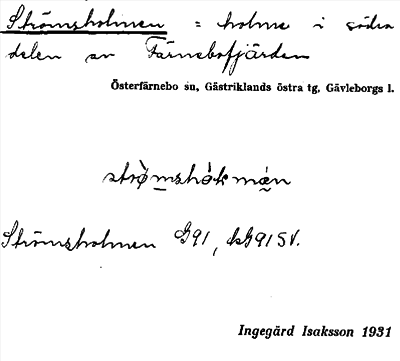 Strömsholmen = holme i södra
delen av Färnebofjärden
Österfärnebo sn, Gästriklands östra tg, Gävleborgs l.
Strömsholmen G91, kG91SV.
Ingegärd Isaksson 1931